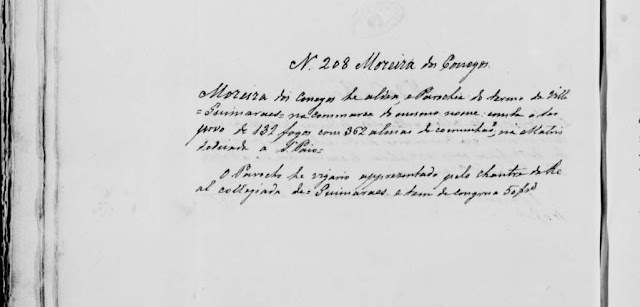 N. 208 Moreira dos Conegos.
Moreira dos Conegos he aldea, e Parochia do termo da Villa
=Guimaraes= na commarca do mesmo nome: o seu
povo de 132 fogos com 362 almas de comunhaõ, na Matris
dedicada a S. Paio=
O Parocho he vigario appresentado pelo Chantre da Re
al collegiada de=Guimaraes. e tem de congrua